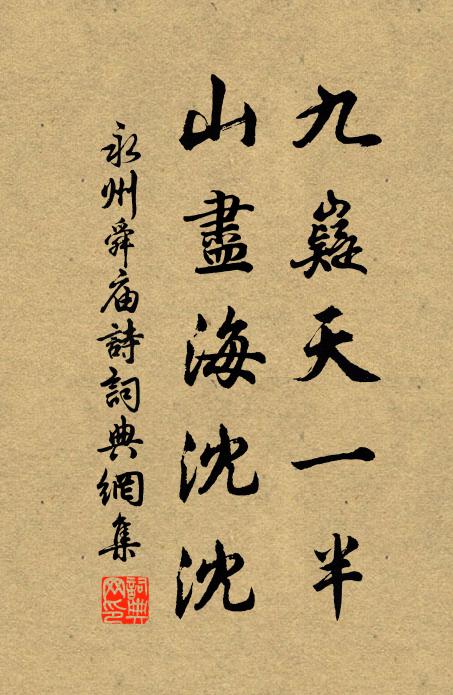 九嶷天一半
山盡海沈沈
永州舜庙詩詞典網集
詞典
网印